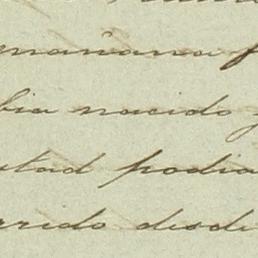 mañana
bia nacido
tad podia
rrido desde